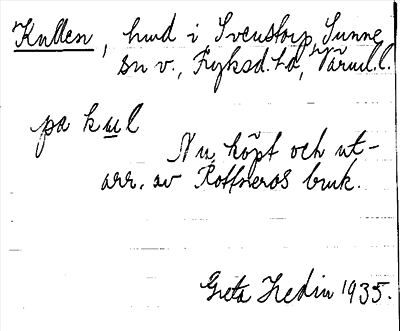 Kullen, hmd i Svenstorp, Sunne
sn v., Fryksd. hd, Värml. l.
på kul
Nu köpt och ut-
arr. av Rottneros bruk.
Greta Hedin 1935.